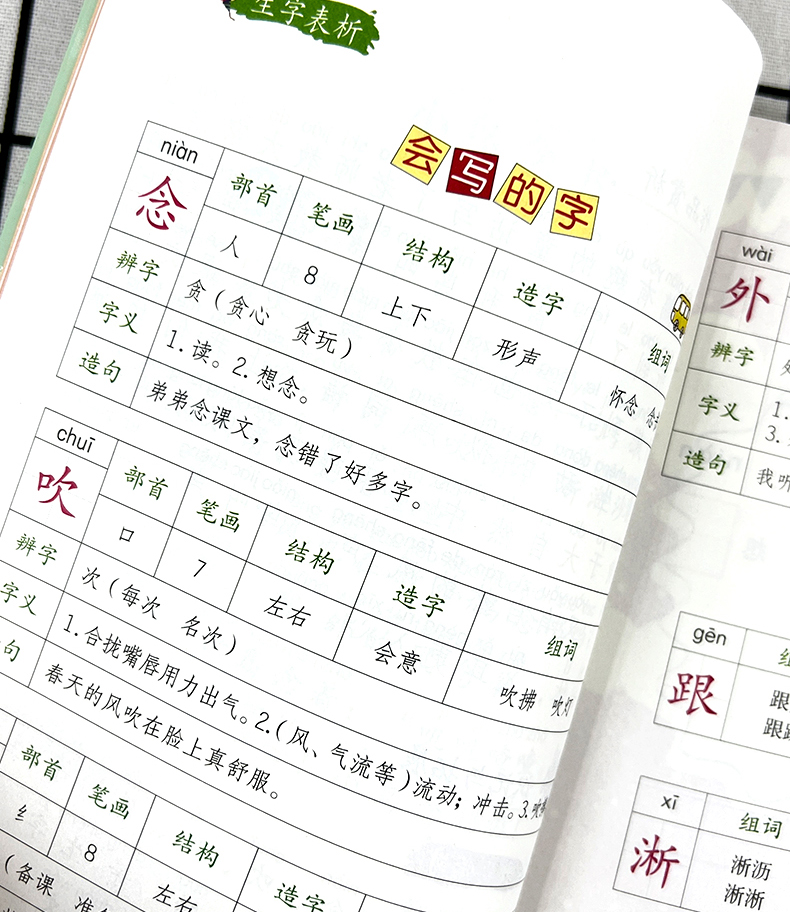 生字表析
会写的字
niàn
念 部首 笔画 结构 造字 组词
人 8 上下 形声 怀念
辨字 贪（贪心 贪玩）
字义 1.读。2.想念。
造句 弟弟念课文，念错了好多字。
chuī
吹 部首 笔画 结构 造字 组词
口 7 左右 会意 吹拂 吹灯
辨字 次（每次 名次）
字义 1.合拢嘴唇用力出气。2.（风、气流等）流动；冲击。3.
句 春天的风吹在脸上真舒服。
部首 笔画 结构 造字
纟 8 左右
（备课
wài
外
辨字
字义 1.
3.
造句 我听
gēn
跟
跟
跟
xī
淅 组词
淅沥
淅淅